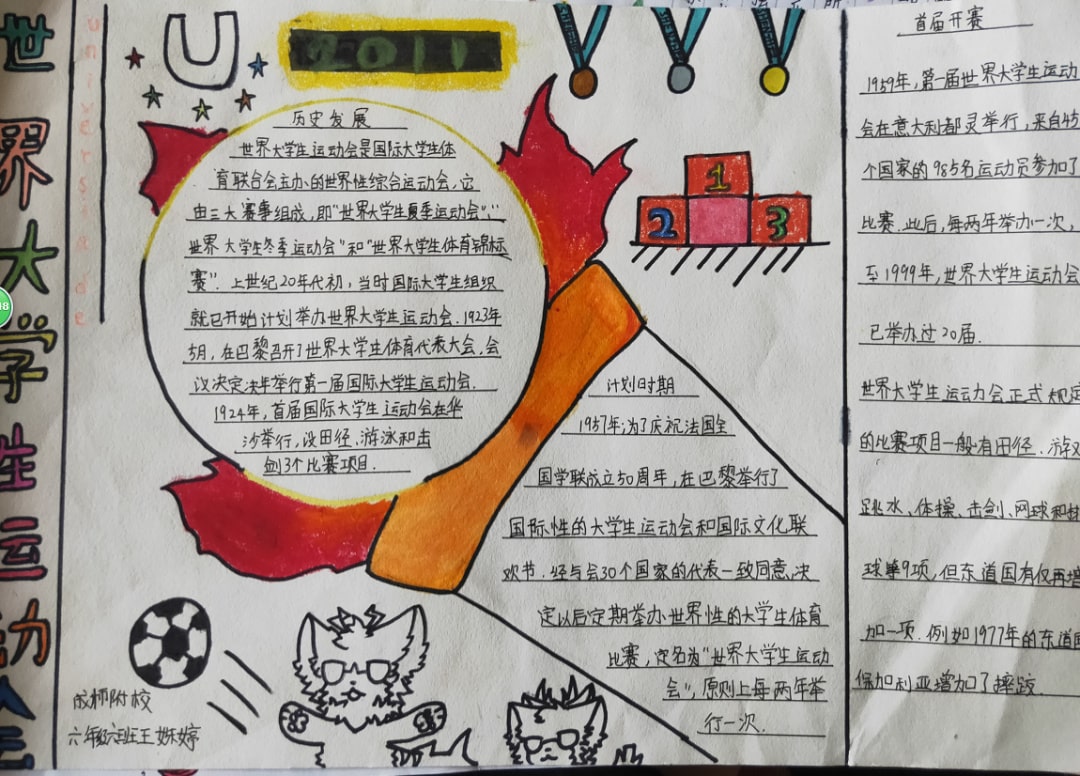 世界大学生运动会
universiade
U
2011
历史发展
世界大学生运动会是国际大学生体
育联合会主办的世界性综合运动会，它
由三大赛事组成，即"世界大学生夏季运动会"、"
世界大学生冬季运动会"和"世界大学生体育锦标
赛"．上世纪20年代初，当时国际大学生组织
就已开始计划举办世界大学生运动会．1923年
5月，在巴黎召开了世界大学生体育代表大会，会
议决定次年举行第一届国际大学生运动会．
1924年，首届国际大学生运动会在华
沙举行，设田径、游泳和击
剑3个比赛项目．
1
2
3
计划日时期
1957年，为了庆祝法国全
国学联成立50周年，在巴黎举行了
国际性的大学生运动会和国际文化联
欢节．经与会30个国家的代表一致同意，决
定以后定期举办世界性的大学生体育
比赛，定名为"世界大学生运动
会"，原则上每两年举
行一次．
首届开赛
1959年，第一届世界大学生运动
会在意大利都灵举行，来自45
个国家的985名运动员参加了
比赛．此后，每两年举办一次，
至1999年，世界大学生运动会
已举办过20届．
世界大学生运动会正式规定
的比赛项目一般有田径、游泳
跳水、体操、击剑、网球和
球等9项，但东道国有仅再增
加一项．例如1977年的东道国
保加利亚增加了摔跤．
成师附校
六年级六班王姝婷
18